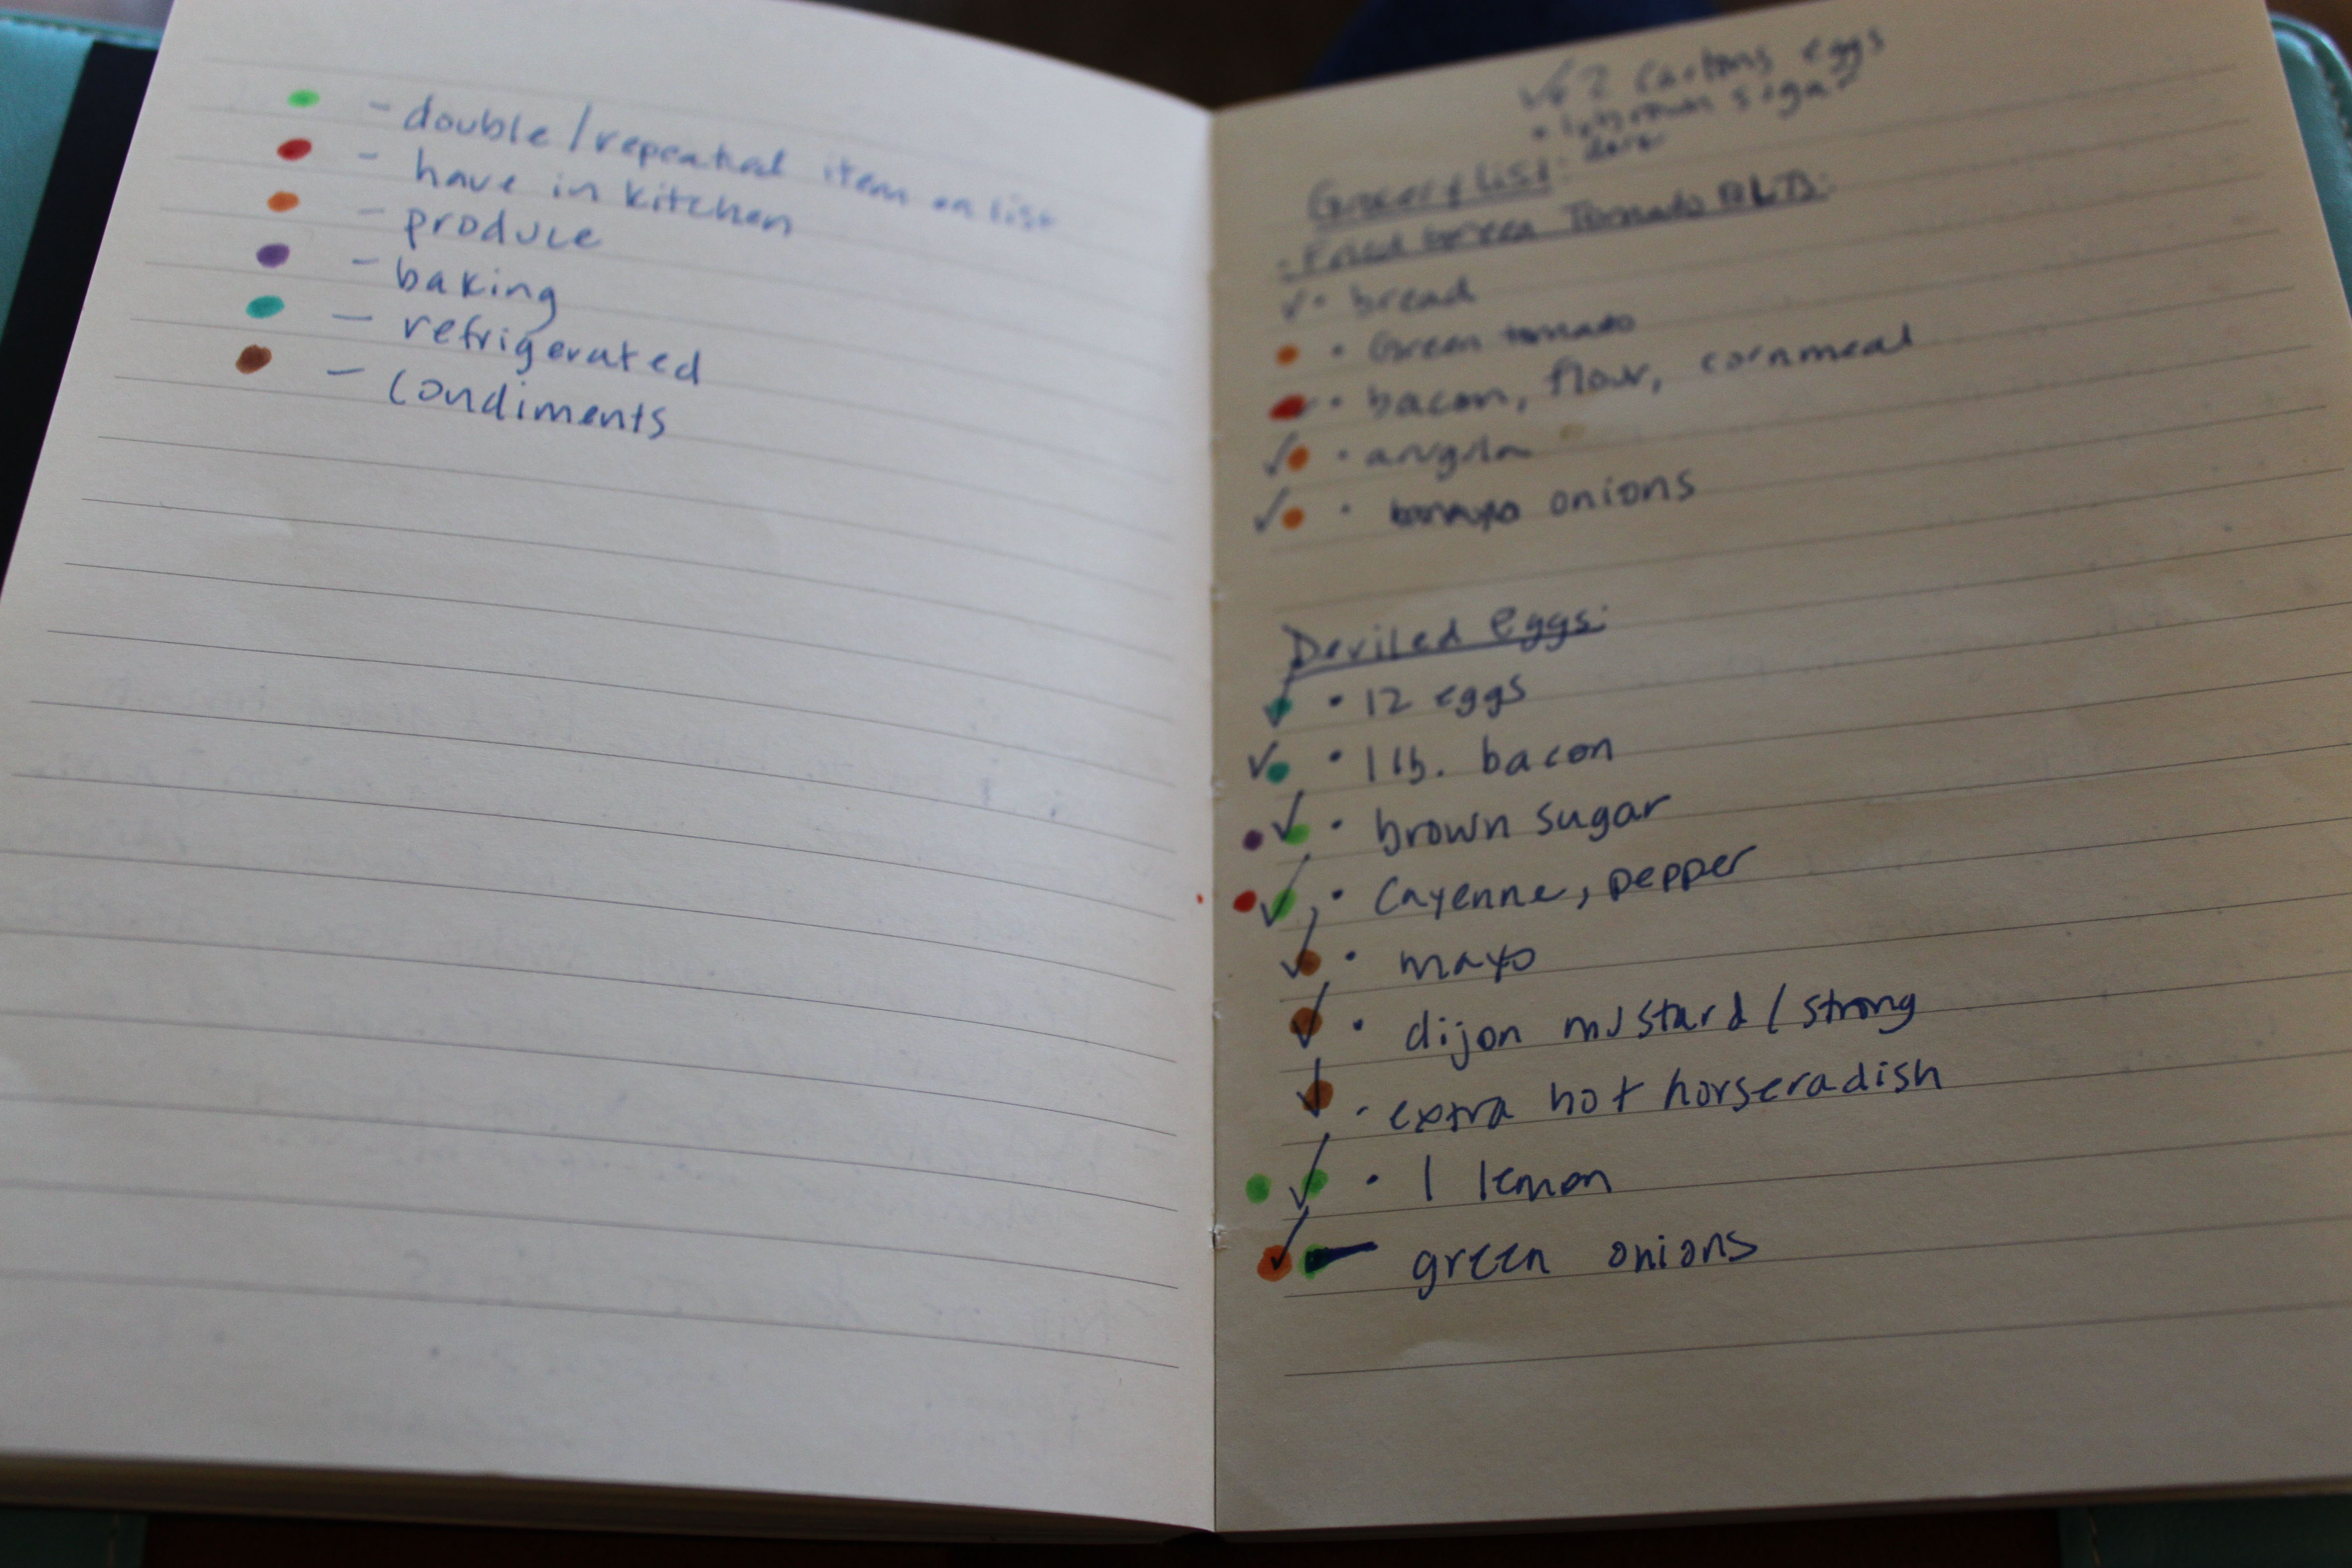 - double/repeated item on list
- have in kitchen
- produce
- baking
- refrigerated
- condiments
✓• 2 cartons eggs
• brown sugar
Grocery List:
- Fried Green Tomato BLTs:
✓• bread
• Green tomato
• bacon, flour, cornmeal
✓• arugula
✓• onions
Deviled eggs:
✓• 12 eggs
✓• 1 lb. bacon
✓• brown sugar
✓• Cayenne, pepper
✓• mayo
✓• dijon mustard / strong
✓• extra hot horseradish
✓• 1 lemon
✓ green onions